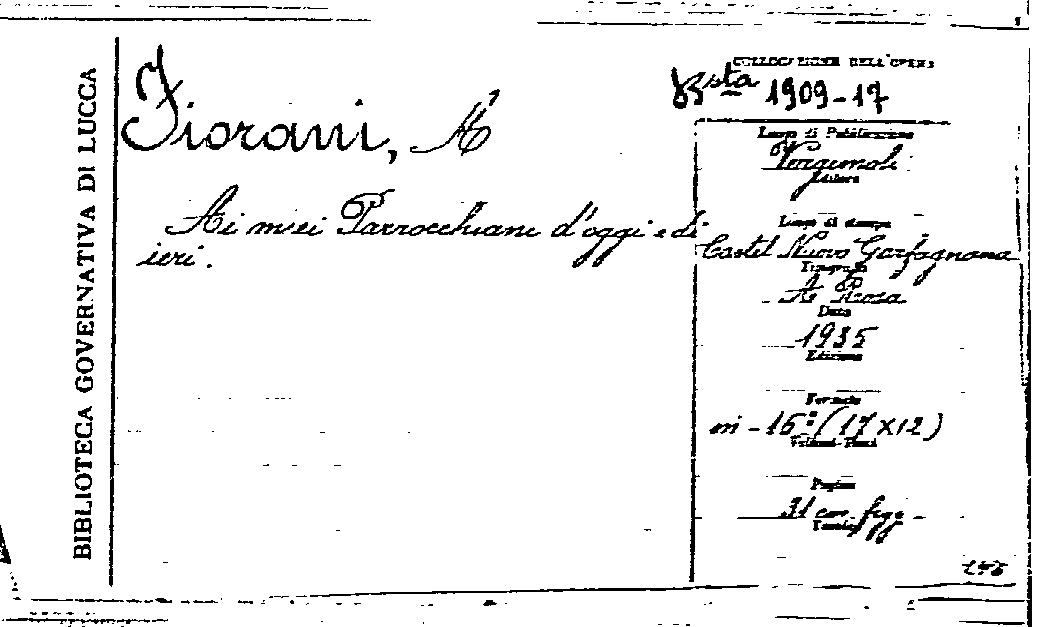 BIBLIOTECA GOVERNATIVA DI LUCCA
Fiorani, A
Ai miei Parrocchiani d'oggi e di
ieri.
COLLOCAZIONE DELL'OPERA
Bsta 1909-17
Luogo di Pubblicazione
Vergemoli
Editore
Luogo di stampa
Castel Nuovo Garfagnana
Tipografia
A. Rosa
Data
1935
Edizione
Formato
in-16º (17x12)
Volumi-Tomi
Pagine
31 con figg.
Tavole